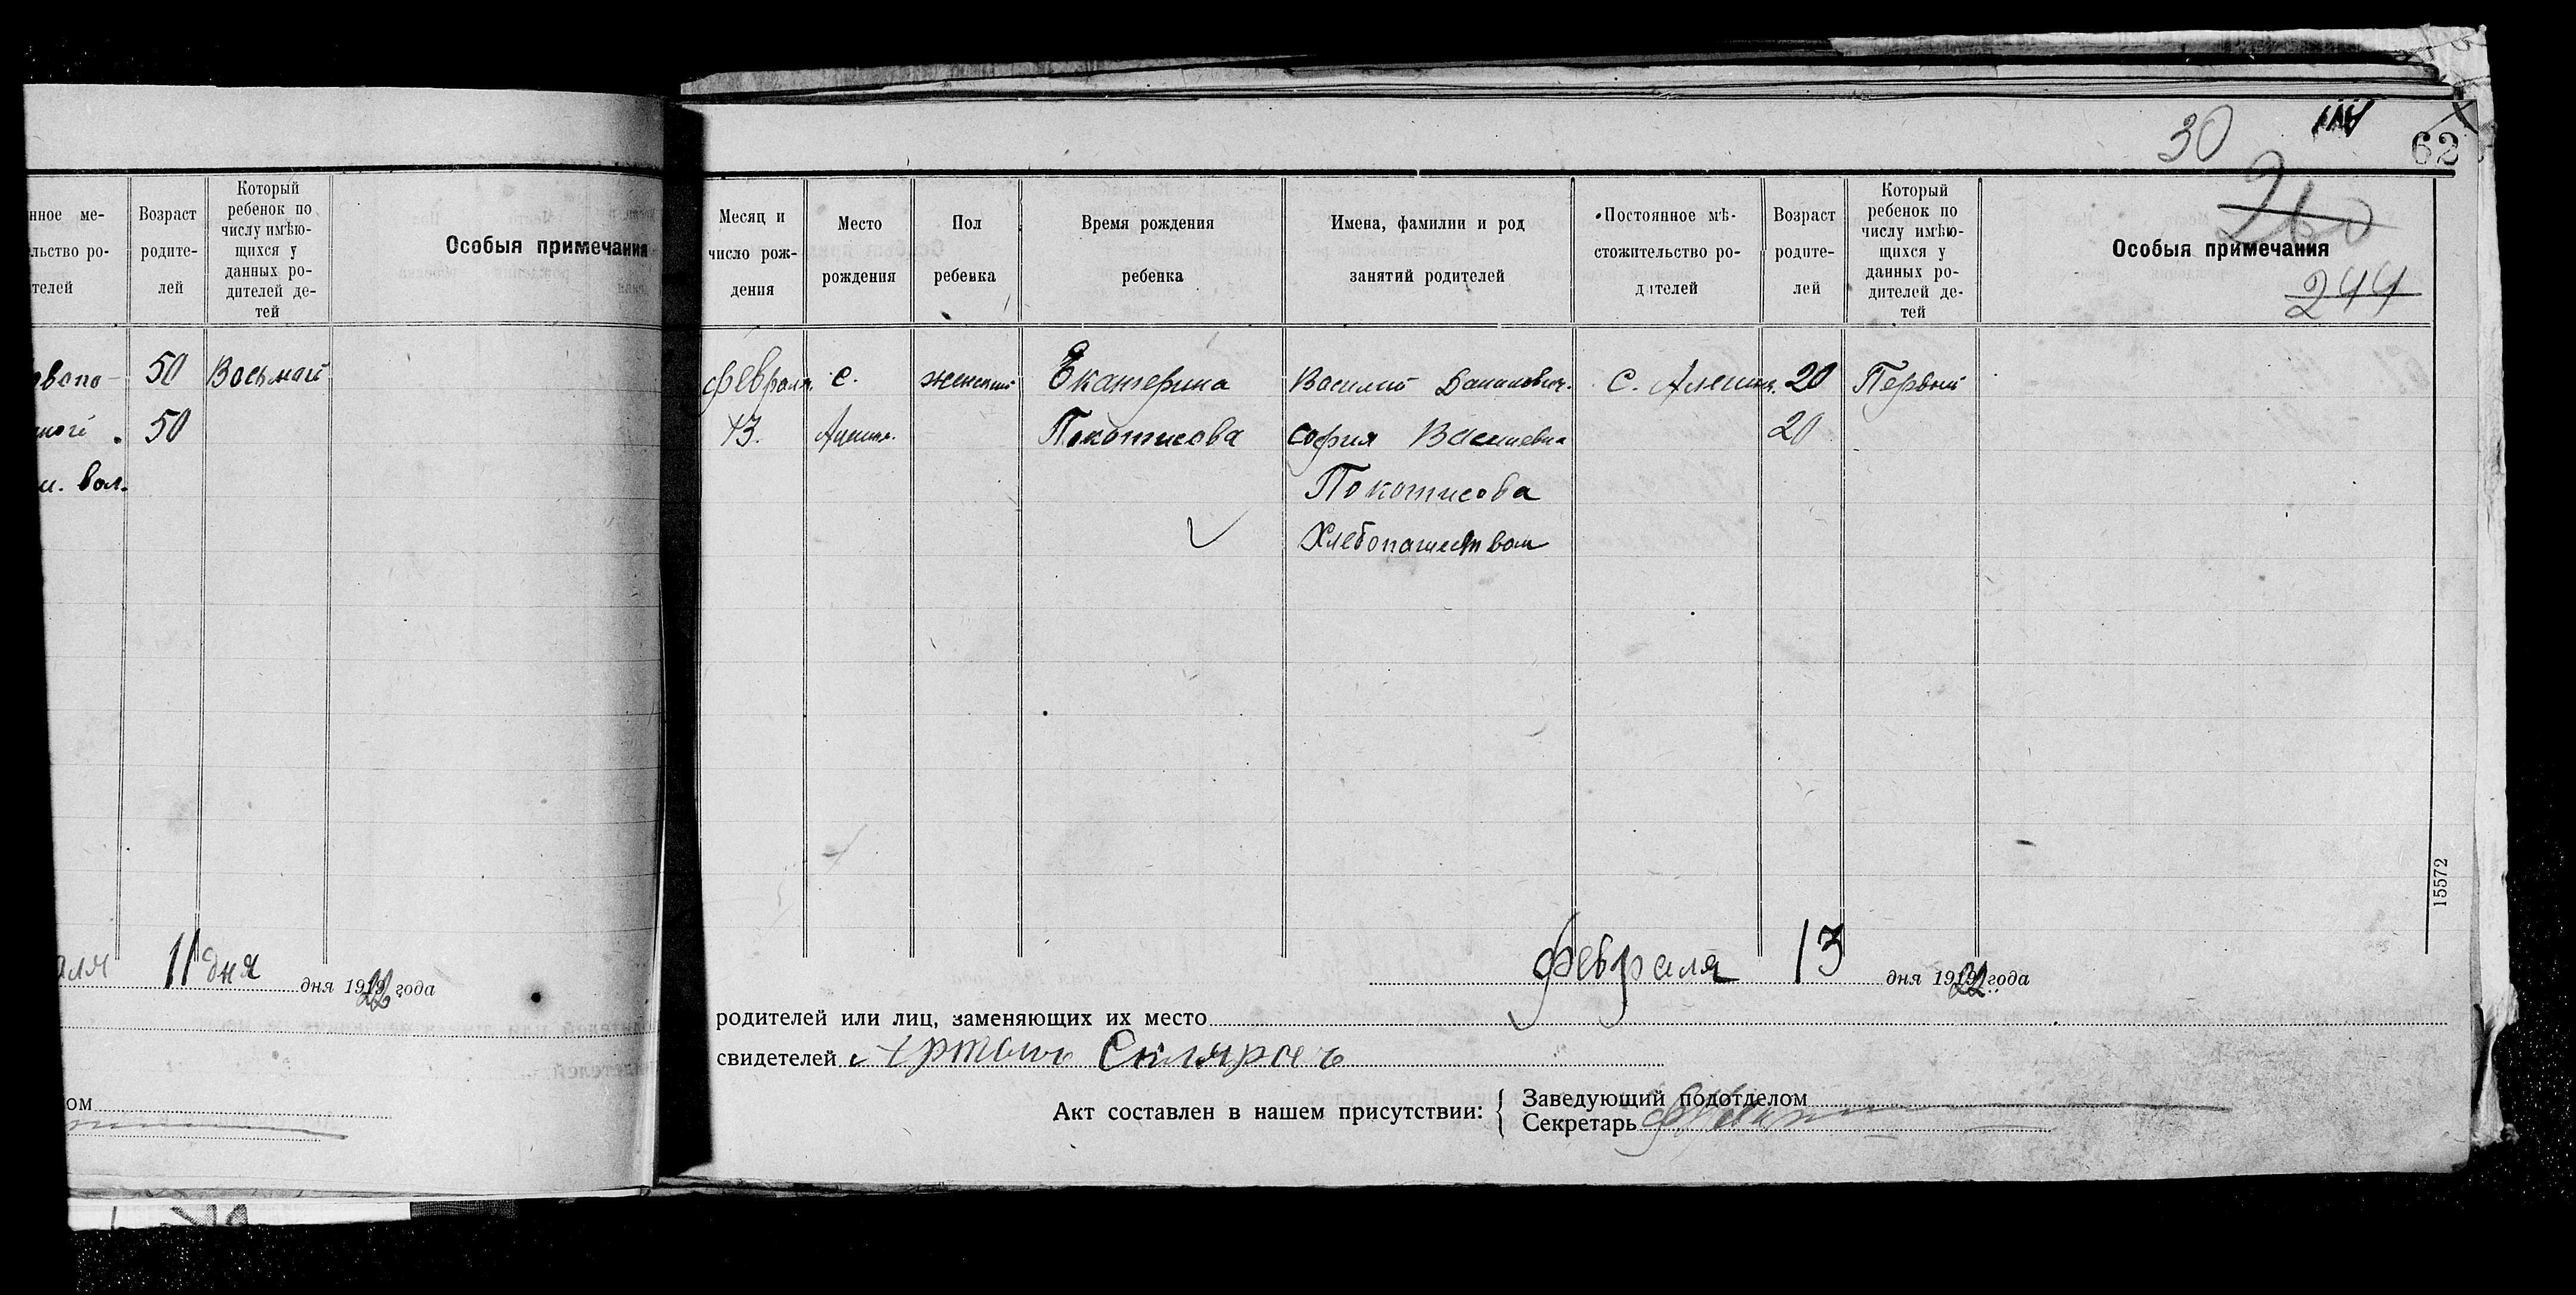 нное ме-
льство ро-
телей
Возраст
родите-
лей
Который
ребенок по
числу имѣю-
щихся у
данных ро-
дителей де-
тей
Особыя примечания
50 Восьмой
50
вол.
11 дня дня 1922 года
ом
30
62
260
244
Месяц и
число рож-
дения
Место
рождения
Пол
ребенка
Время рождения
ребенка
Имена, фамилии и род
занятий родителей
Постоянное мѣ-
стожительство ро-
дителей
Возраст
родите-
лей
Который
ребенок по
числу имѣю-
щихся у
данных ро-
дителей де-
тей
Особыя примечания
февраля с. женский Екатерина Василий Данилович. с. 20 Первый
13. Покотилова София 20
Покотилова
Хлебопашеством
15572
февраля 13 дня 1922 года
родителей или лиц, заменяющих их место
свидетелей
Акт составлен в нашем присутствии:
Заведующий подотделом
Секретарь